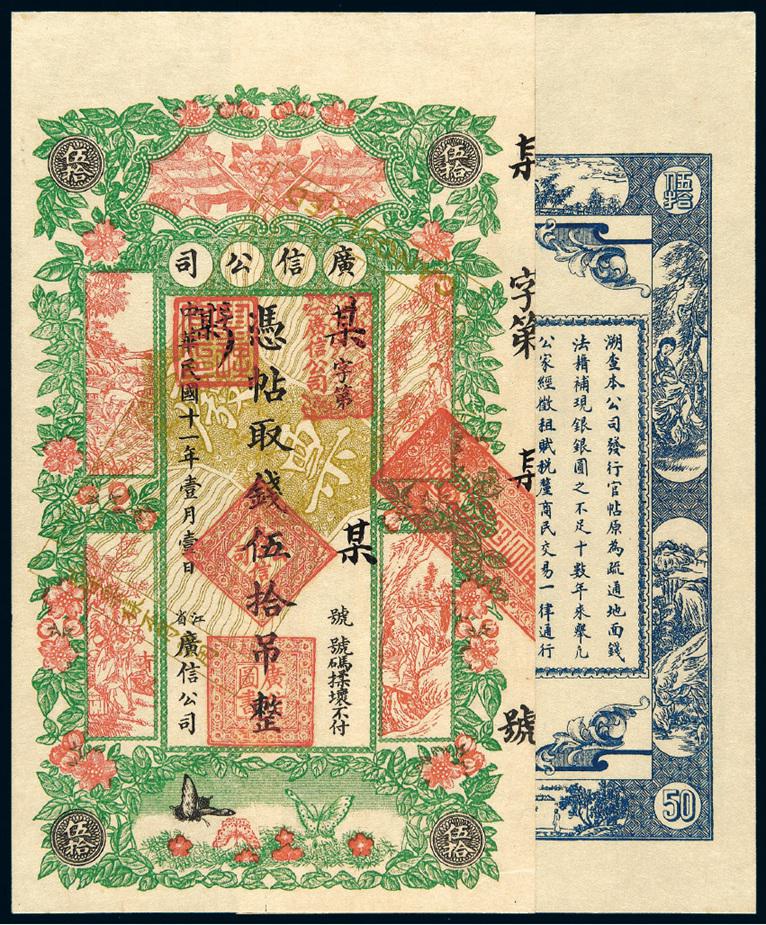 伍拾
伍拾
廣信公司
某字第
某
號
號碼揉壞不付
憑帖取錢伍拾吊整
中華民國十一年壹月壹日
江省廣信公司
廣信公司
伍拾
伍拾
字第
號
伍拾
溯查本公司發行官帖原為疏通地面錢
法補現銀銀圓之不足十數年來舉凡
公家經徵租賦稅釐商民交易一律通行
50